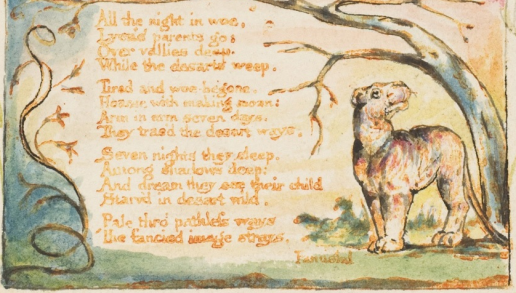 All the night in woe,
Lyca's parents go:
Over vallies deep.
While the desarts weep.
Tired and woe-begone.
Hoarse with making moan:
Arm in arm seven days.
They trac'd the desart ways.
Seven nights they sleep.
Among shadows deep:
And dream they see their child
Starv'd in desart wild.
Pale thro' pathleſs ways
The fancied image strays.
Famish'd